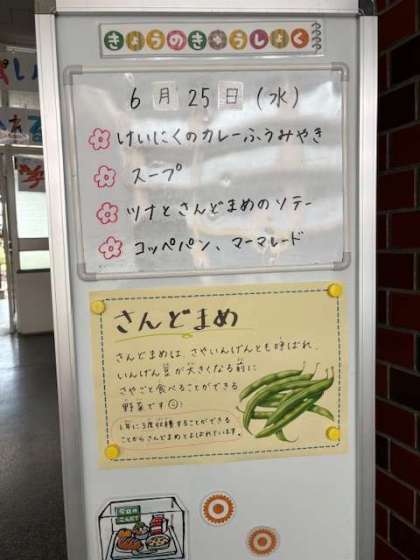 きょうのきゅうしょく
6月25日(水)
けいにくのカレーふうみやき
スープ
ツナとさんどまめのソテー
コッペパン、マーマレード
さんどまめ
さんどまめは、さやいんげんとも呼ばれ、
いんげん豆が大きくなる前に
さやごと食べることができる
野菜です☺!
1年に3度収穫することができる
ことからさんどまめとよばれています。